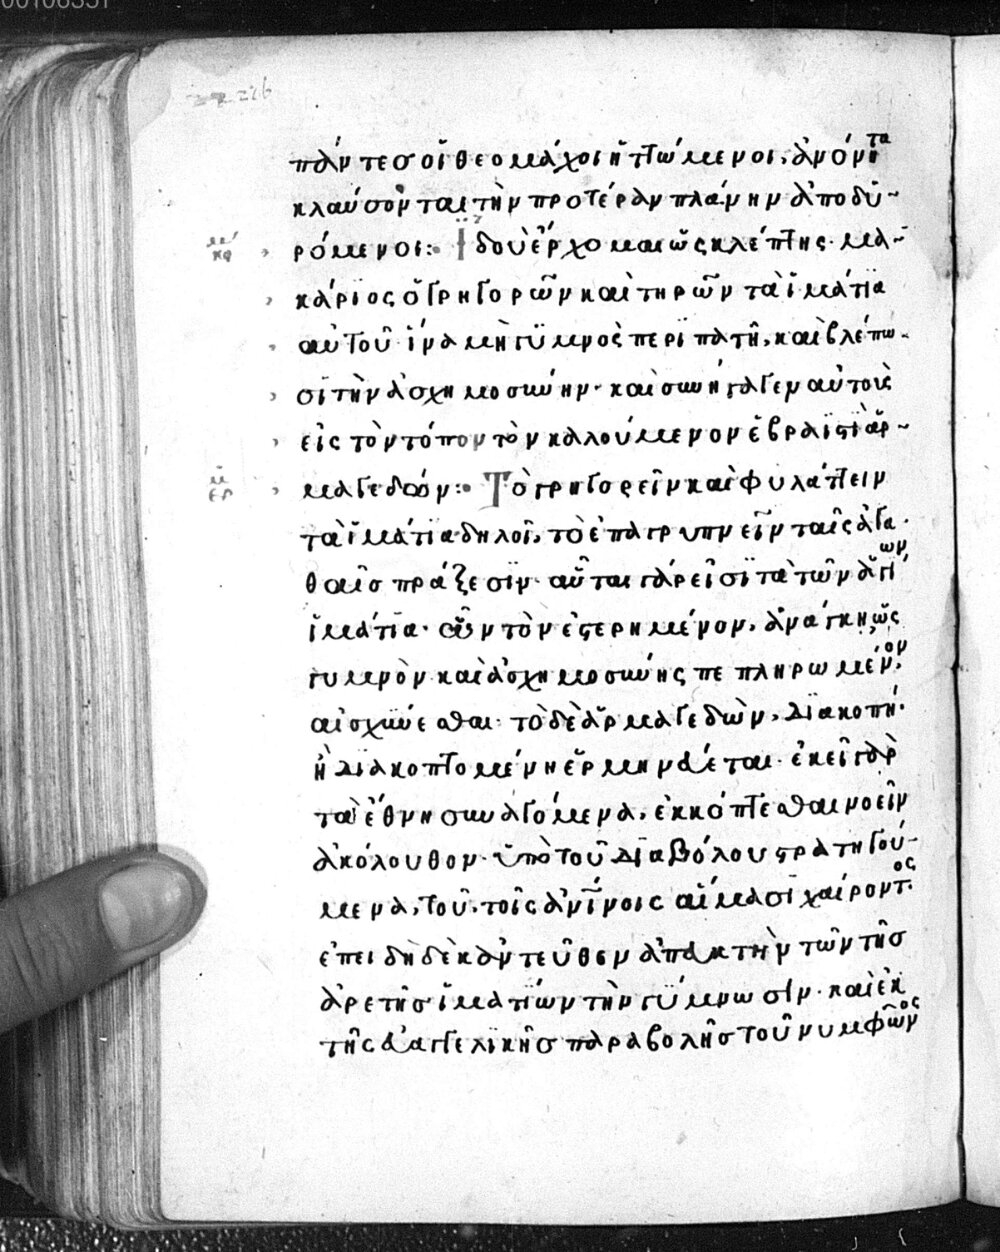 00106351
226
πάντες οἱ θεομάχοι ἡττώμενοι, ἀνόνητα
κλαύσονται τὴν προτέραν πλάνην ἀποδυ-
ρόμενοι: Ἰδοὺ ἔρχομαι ὡς κλέπτης· μα-
κάριος ὁ γρηγορῶν καὶ τηρῶν τὰ ἱμάτια
αὐτοῦ· ἵνα μὴ γυμνὸς περιπατῇ, καὶ βλέπω-
σι τὴν ἀσχημοσύνην· καὶ συνήγαγεν αὐτοὺς
εἰς τὸν τόπον τὸν καλούμενον ἑβραϊστὶ ἁρ-
μαγεδών: Τὸ γρηγορεῖν καὶ φυλάττειν
τὰ ἱμάτια δηλοῖ, τὸ ἐπαγρυπνεῖν ταῖς ἀγα-
θαῖς πράξεσιν· αὗται γάρ εἰσι τὰ τῶν ἁγίων
ἱμάτια· ὧν τὸν ἐστερημένον, ἀνάγκη ὡς
γυμνὸν καὶ ἀσχημοσύνης πεπληρωμένον,
αἰσχύνεσθαι· τὸ δὲ ἁρμαγεδὼν, διακοπὴ·
ἢ διακοπτομένη ἑρμηνεύεται· ἐκεῖ γὰρ
τὰ ἔθνη συναγόμενα, ἐκκόπτεσθαι νοεῖν
ἀκόλουθον· ὑπὸ τοῦ διαβόλου στρατηγού-
μενα, τοῦ, τοῖς ἀνίνοις αἵμασι χαίροντος·
ἐπειδὴ δὲ κἀντεῦθεν τὴν τῶν τῆς
ἀρετῆς ἱματίων τὴν γύμνωσιν· καὶ ἐκ
τῆς εὐαγγελικῆς παραβολῆς τοῦ νυμφῶνος